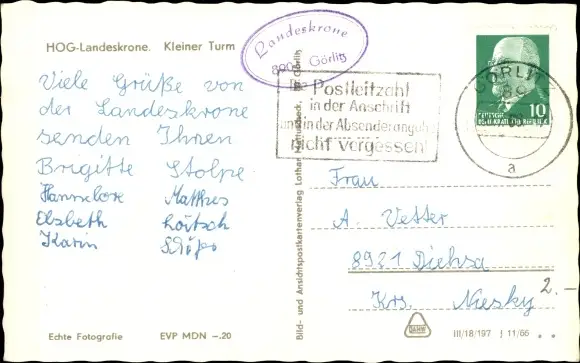 HOG-Landeskrone. Kleiner Turm
Viele Grüße von
der Landeskrone
senden Ihnen
Brigitte Stolpe
Hannelore Matthes
Elsbeth
Karin
Echte Fotografie EVP MDN –.20
Landeskrone
Görlitz
Die Postleitzahl
in der Anschrift
und in der Absenderangabe
nicht vergessen!
GÖRLITZ
a
10
DEUTSCHE
DEMOKRATISCHE REPUBLIK
Bild- und Ansichtspostkartenverlag Lothar Görlitz
Frau
A. Vetter
8921 Diehsa
Krs. Niesky
2.-
III/18/197 J 11/66